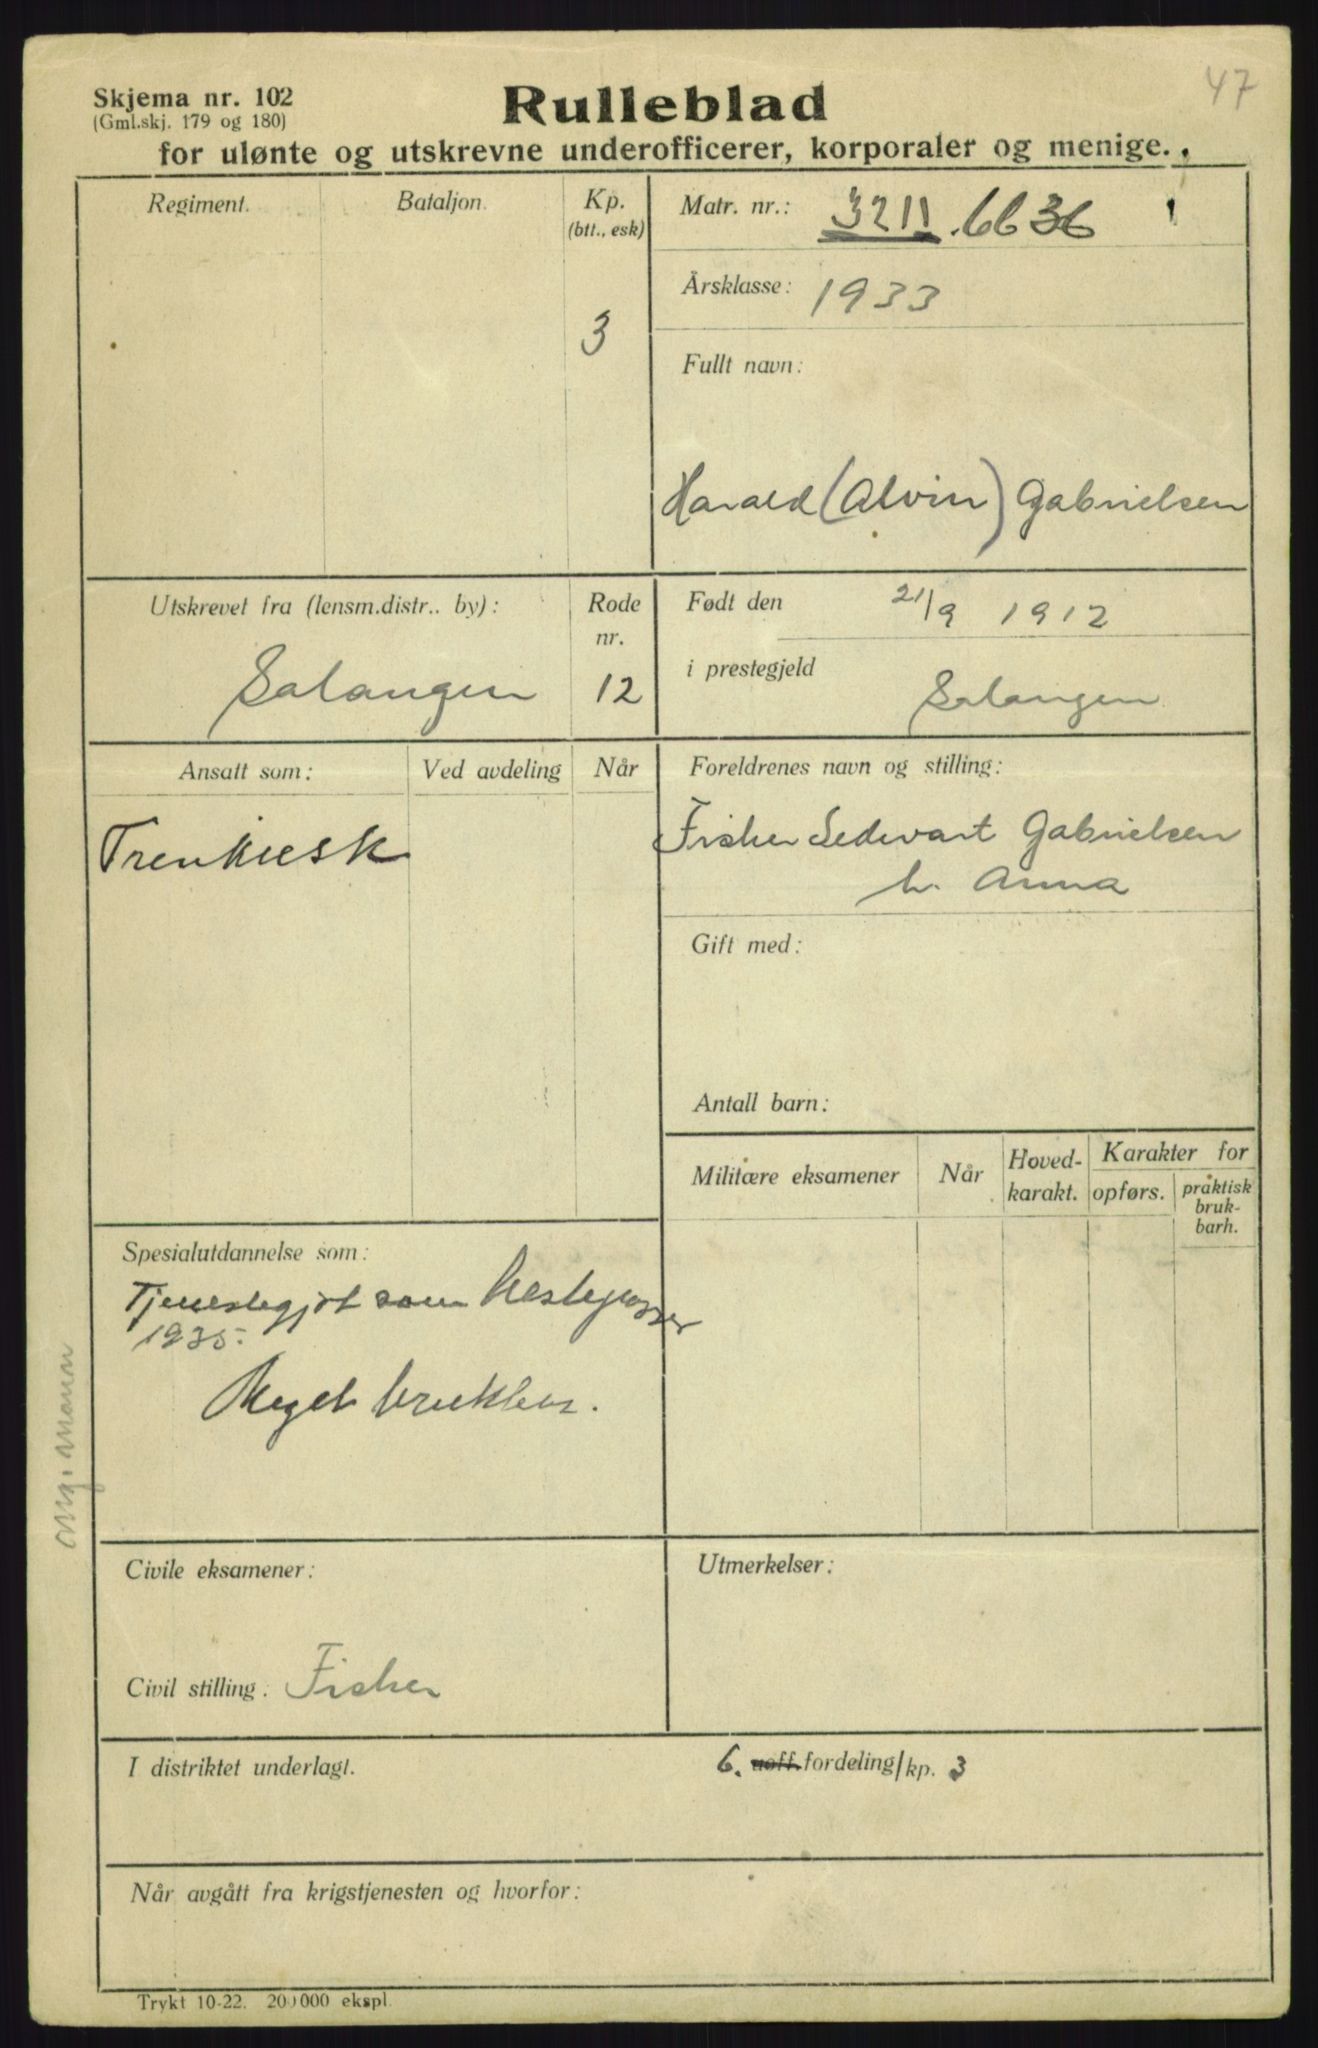 47
Skjema nr. 102
(Gml.skj. 179 og 180)
Rulleblad
for ulønte og utskrevne underofficerer, korporaler og menige.
Regiment.
Bataljon.
Kp.
(btt., esk)
3
Matr. nr.: 3211.6636
Årsklasse: 1933
Fullt navn:
Harald (Alvin) Gabrielsen
Utskrevet fra (lensm.distr.. by):
Salangen
Rode
nr.
12
Født den 21/9 1912
i prestegjeld
Salangen
Ansatt som:
Ved avdeling
Når
Trenkusk
Foreldrenes navn og stilling:
Fisker Sedevart Gabrielsen
h. Anna
Gift med:
Antall barn:
Militære eksamener
Når
Hoved-
karakt.
Karakter for
opførs.
praktisk
bruk-
barh.
Spesialutdannelse som:
Tjenestegjøt som hestepasser
1935.
Meget brukbar.
Civile eksamener:
Civil stilling: Fisker
Utmerkelser:
I distriktet underlagt.
6. uoff. fordeling/kp. 3
Når avgått fra krigstjenesten og hvorfor:
Trykt 10-22. 200000 ekspl.